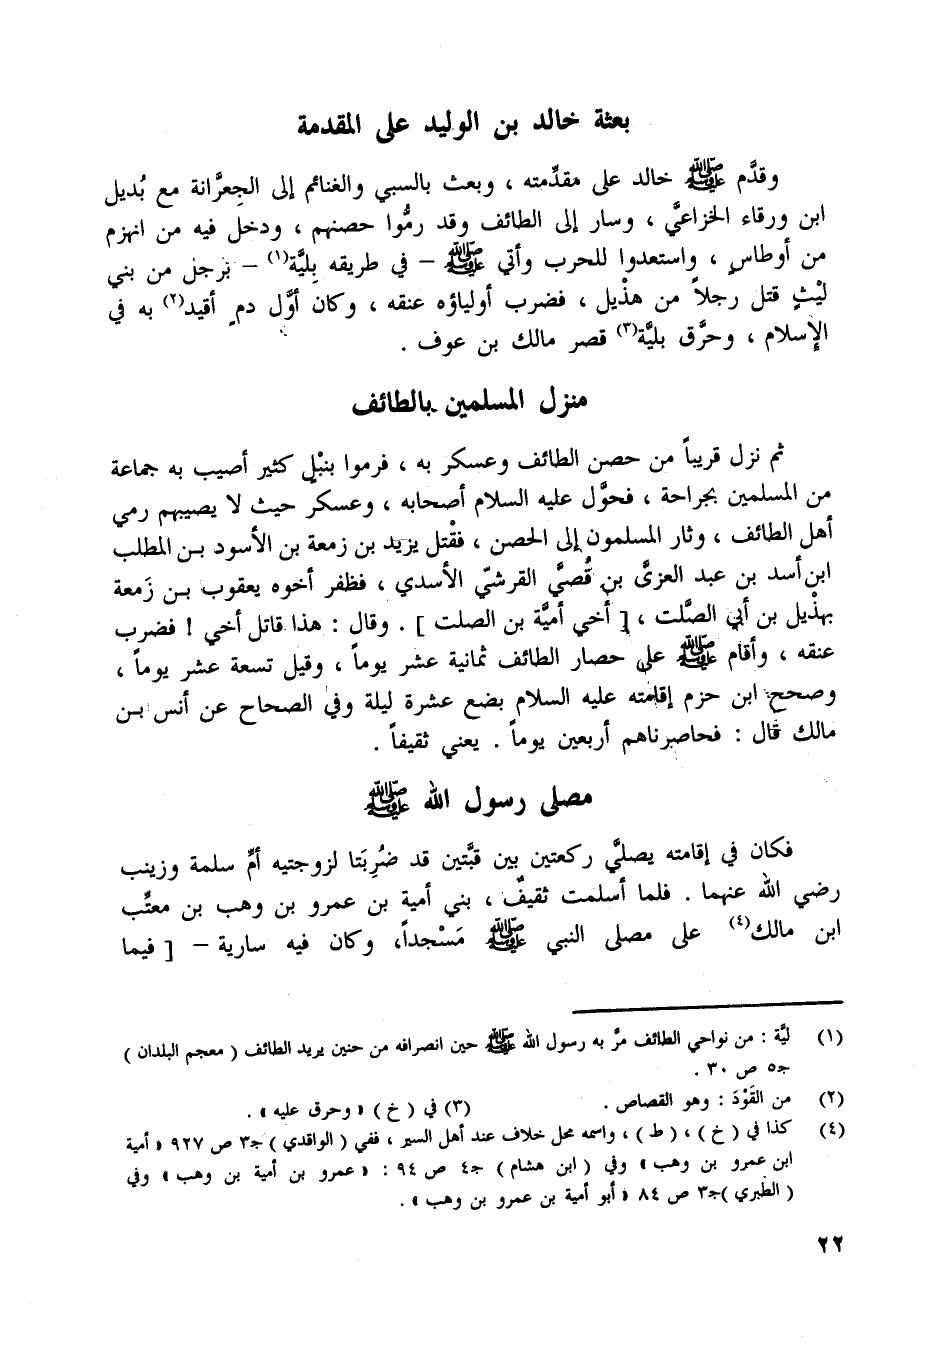 بعثة خالد بن الوليد على المقدمة
وقدَّم ﷺ خالد على مقدِّمته ، وبعث بالسبي والغنائم إلى الجِعرَّانة مع بُديل
ابن ورقاء الخزاعيَّ ، وسار إلى الطائف وقد رمُّوا حصنهم ، ودخل فيه من انهزم
من أوطاسٍ ، واستعدوا للحرب وأتي ﷺ – في طريقه بِليَّة(١) – برجل من بني
ليْثٍ قتل رجلاً من هذْيل ، فضرب أولياؤه عنقه ، وكان أوَّل دم أقيد(٢) به في
الإسلام ، وحرَّق بليَّة(٣) قصر مالك بن عوف .
منزل المسلمين بالطائف
ثم نزل قريباً من حصن الطائف وعسكر به ، فرموا بنبْلٍ كثير أصيب به جماعة
من المسلمين بجراحة ، فحوَّل عليه السلام أصحابه ، وعسكر حيث لا يصيبهم رمي
أهل الطائف ، وثار المسلمون إلى الحصن ، فقْتل يزيد بن زمعة بن الأسود بـن المطلب
ابن أسد بن عبد العزىَّ بن قُصيَّ القرشيّ الأسدي ، فظفر أخوه يعقوب بـن زَمعة
بهذْيل بن أبي الصَّلت ، [ أخي أميَّة بن الصلت ] . وقال : هذا قاتل أخي ! فضرب
عنقه ، وأقام ﷺ على حصار الطائف ثمانية عشر يوماً ، وقيل تسعة عشر يوماً ،
وصحح ابن حزم إقامته عليه السلام بضع عشرة ليلة وفي الصحاح عن أنس بـن
مالك قال : فحاصرناهم أربعين يوماً . يعني ثقيفاً .
مصلى رسول الله ﷺ
فكان في إقامته يصليَّ ركعتين بين قبَّتين قد ضُرِبَتا لزوجتيه أمِّ سلمة وزينب
رضي الله عنهما . فلما أسلمت ثقيفٌ ، بني أمية بن عمرو بن وهب بن معتِّب
ابن مالك(٤) على مصلى النبي ﷺ مَسْجداً، وكان فيه سارية – [ فيما
(١) ليَّة : من نواحي الطائف مرَّ به رسول الله ﷺ حين انصرافه من حنين يريد الطائف ( معجم البلدان )
جـ٥ ص ٣٠ .
(٢) من القَوَدَ : وهو القصاص . (٣) في ( خ ) « وحرق عليه » .
(٤) كذا في ( خ ) ، ( ط ) ، واسمه محل خلاف عند أهل السير ، ففي ( الواقدي ) جـ٣ ص ٩٢٧ « أمية
ابن عمرو بن وهب » وفي ( ابن هشام ) جـ٤ ص ٩٤ : « عمرو بن أمية بن وهب » وفي
( الطبري )جـ٣ ص ٨٤ « أبو أمية بن عمرو بن وهب » .
٢٢